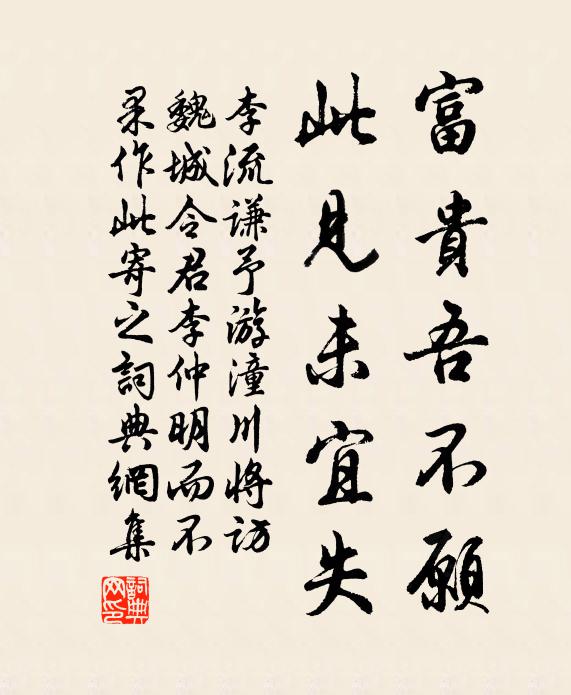 富貴吾不願
此見未宜失
李流謙予游潼川將訪
魏城令君李仲明而不
果作此寄之詞典網集
詞典
网印